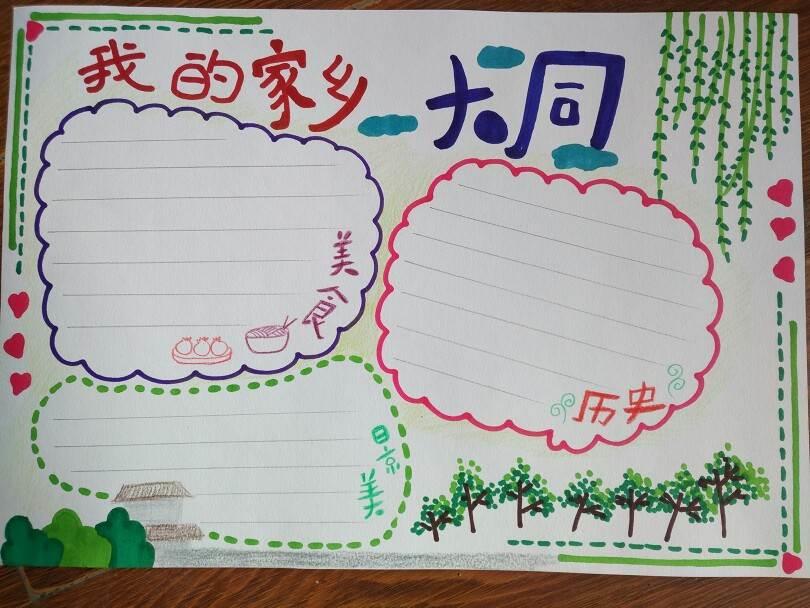 我的家乡大同
美食
历史
景美